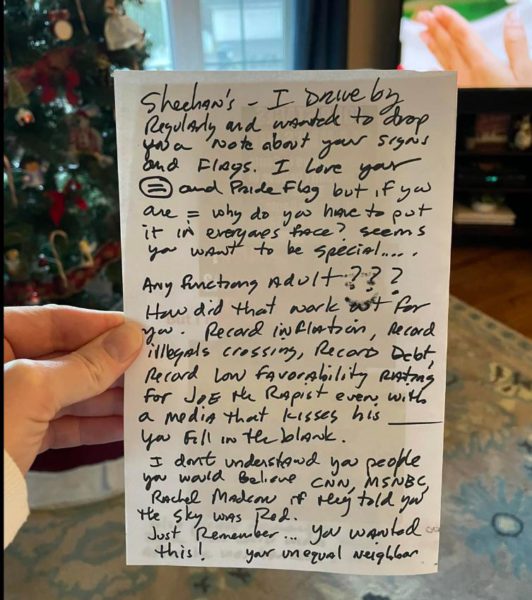 Sheehan's - I Drive by
Regularly and wanted to drop
you a note about your signs
and Flags. I love your
= and Pride Flag but if you
are = why do you have to put
it in everyones face? seems
you want to be special.....
Any functiong Adult ???
How did that work out for
you. Record inflation, Record
illegals crossing, Record Debt,
Record Low favorability Rating
for Joe the Rapist even with
a media that kisses his ____
you fill in the blank.
I dont understand you people
you would Believe CNN, MSNBC,
Rachel Madcow if they told you
the sky was Red.
Just Remember... you wanted
this! your unequal neighbor